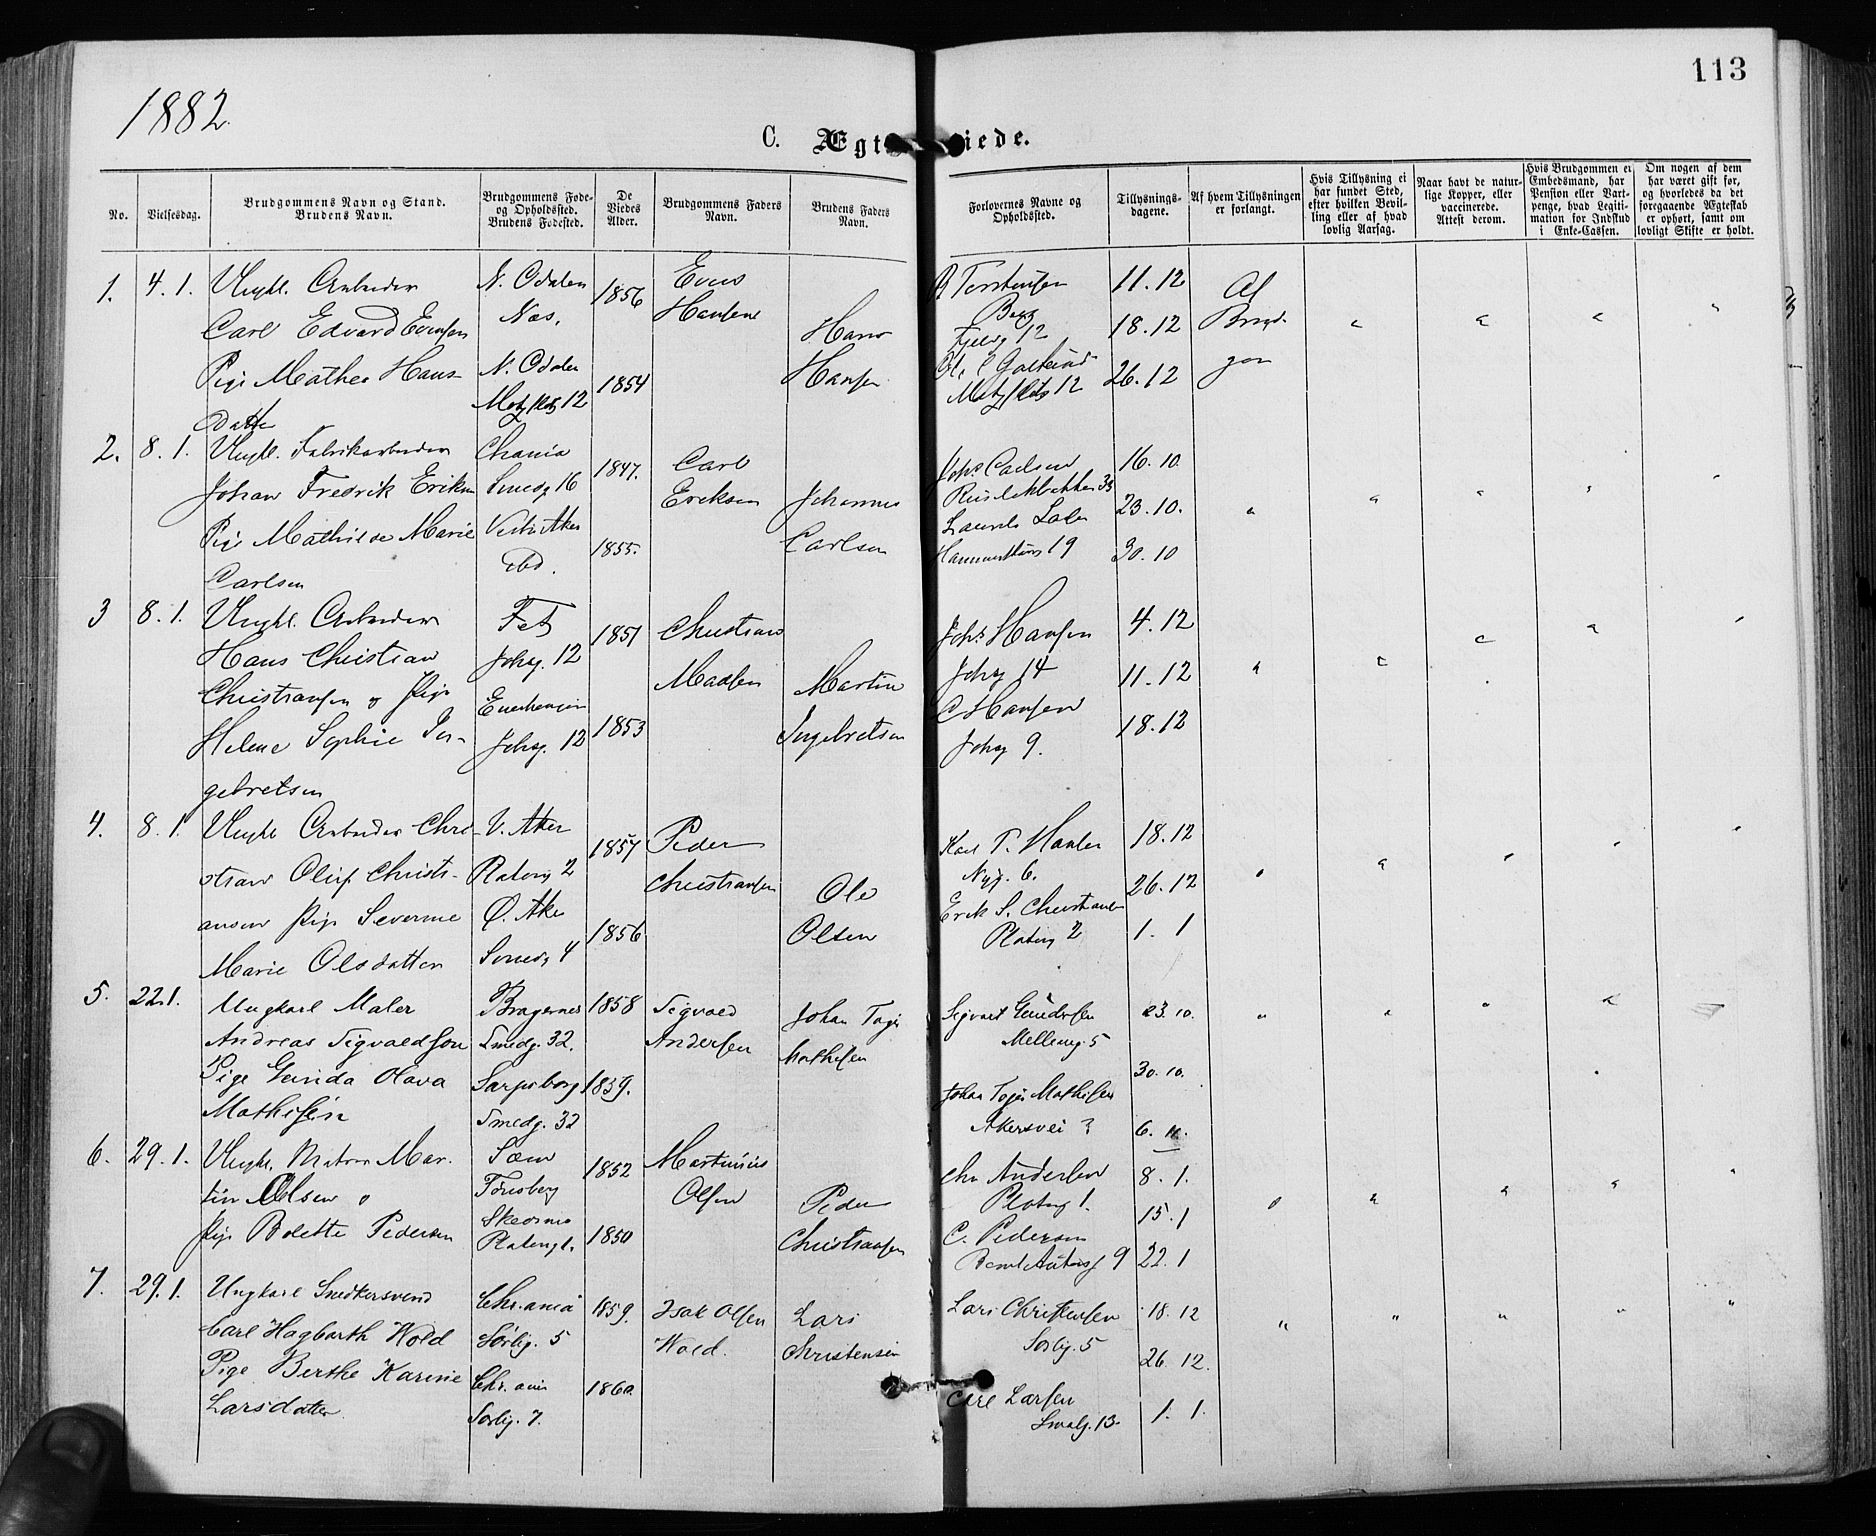 113
1882.
C. Ægt iede.
No.
Vielsesdag.
Brudgommens Navn og Stand.
Brudens Navn.
Brudgommens Føde-
og Opholdssted.
Brudens Fødested.
De
Viedes
Alder.
Brudgommens Faders
Navn.
Brudens Faders
Navn.
Forlovernes Navne og
Opholdssted.
Tillysnings-
dagene.
Af hvem Tillysningen
er forlangt.
Hvis Tillysning ei
har fundet Sted,
efter hvilken Bevil-
ling eller af hvad
lovlig Aarsag.
Naar havt de natur-
lige Kopper, eller
vaccinerede.
Attest derom.
Hvis Brudgommen er
Embedsmand, har
Pension eller Vart-
penge, hvad Legiti-
mation for Indskud
i Enke-Cassen.
Om nogen af dem
har været gift før,
og hvorledes da det
foregaaende Ægteskab
er ophørt, samt om
lovligt Skifte er holdt.
1. 4. 1. Ungkl. Arbeider N. Odalen 1856 Evens Torstensen 11. 12 Af
Carl Edvard Evensen Næs, Hansen Hans Berg 18. 12 Brud-
12
Pige Mathea Hans- N. Odalen 1854 Hansen 26. 12 gom
datter 12 12
2. 8. 1. Ungkl. Fabrikarbeider Chania 1847. Carl Johs Carlsen 16. 10.
Johan Fredrik Eriksen Smedg 16 Eriksen Johannes 33 23. 10.
Pige Mathilde Marie Vestre Aker 1855. Carlsen Laurits 30. 10
Carlsen ibd. 19
3 8. 1. Ungkl. Arbeider Fet 1851 Christian Johs Hansen 4. 12
Hans Christian Johsg. 12 Madsen Martin Johsg 14 11. 12
Christiansen og Pige C Hansen
Helene Sophie In- Johsg. 12 1853 Ingebretsen Johsg 9. 18. 12
gebretsen
4. 8. 1. Ungkl Arbeider Chri- V. Aker 1857 Peder Karl P. 18. 12
stian Oluf Christi- Platoug 2 Christiansen Ole Nyg. 6. 26. 12
ansen Pige Severine Ø. Aker 1856 Olsen Erik S. Christiansen
Marie Olsdatter Smedg 4 Platoug 2 1. 1
5. 22.1. Ungkarl Maler Bragernes 1858 Sigvald Johan Sigvart Gundersen 23. 10.
Andreas Sigvaldsen Smedg. 32. Andersen Mathisen Mellemg. 5
Pige Gunda Olava Sarpsborg 1859. Johan Mathisen 30. 10.
Mathisen Smedg. 32 Akersvei 6. 11.
6. 29. 1. Ungkl. Matros Mar- Sæm 1852 Martinius Chr Andersen 8. 1.
tin Olsen o Tønsberg Olsen Peder Platoug 1. 15. 1
Pige Bolette Pedersen Skedsmo 1850 Christiansen C. Pedersen
Platoug 1. 9 22. 1
7. 29. 1. Ungkarl Snedkersvend Chr.ania 1859. Isak Olsen Lars Lars Christensen 18. 12
Carl Hagbarth Wold Sorlig. 5 Wold. Christensen Sorlig. 5 26. 12.
Pige Berthe Karine Chr. ania 1860. Carl Larsen
Larsdatter Sorlig. 7. Smalg. 13. 1. 1.